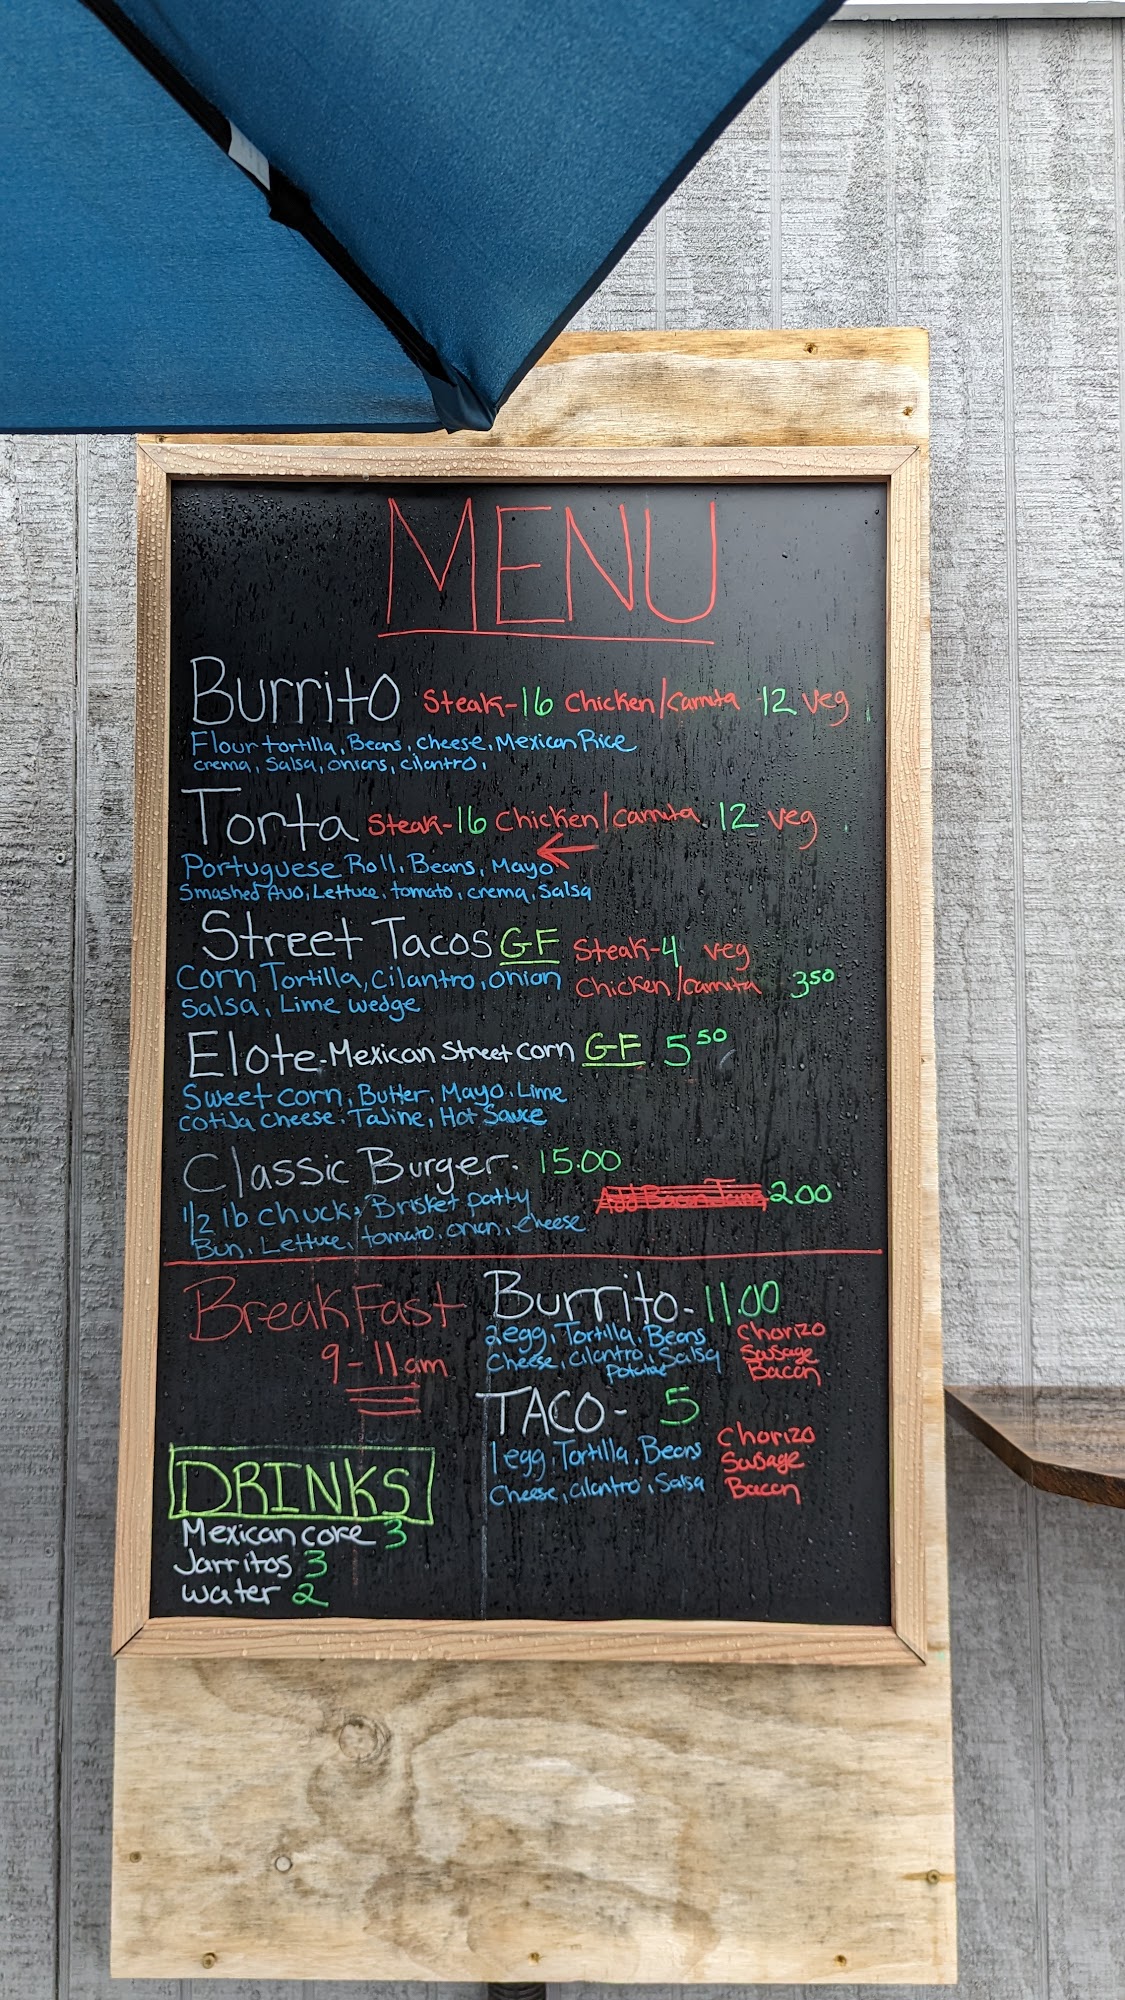 MENU
Burrito Steak-16 Chicken/Carnita 12 veg
Flour tortilla, Beans, cheese, Mexican Rice
crema, Salsa, onions, cilantro,
Torta Steak-16 Chicken/Carnita 12 veg
Portuguese Roll, Beans, Mayo
Smashed Avo, Lettuce, tomato, crema, Salsa
Street Tacos GF Steak-4 veg
Corn Tortilla, cilantro, onion Chicken/Carnita 3 50
Salsa, Lime wedge
Elote-Mexican Street corn GF 5 50
Sweet corn, Butter, Mayo, Lime
Cotija cheese, Tajine, Hot Sauce
Classic Burger. 15.00
1/2 lb chuck, Brisket patty 2.00
Bun, Lettuce, tomato, onion, cheese
BreakFast
9-11am
Burrito- 11.00
2egg, Tortilla, Beans Chorizo
Cheese, cilantro, Salsa Sausage
Bacon
TACO- 5
1egg, Tortilla, Beans Chorizo
Sausage
Cheese, cilantro, Salsa Bacon
DRINKS
Mexican coke 3
Jarritos 3
water 2